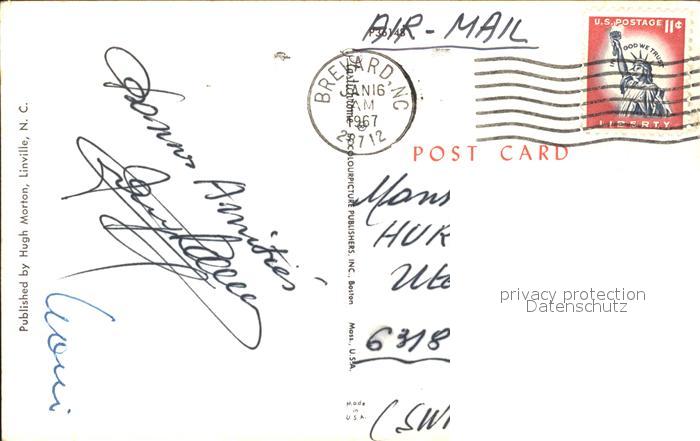 Published by Hugh Morton, Linville, N. C.
Bonnes Amitiés
P36148
COLOURPICTURE PUBLISHERS, INC., Boston
Mass., U.S.A.
Made in
U.S.A.
AIR-MAIL
BREVARD, NC
JAN 16
AM
1967
28712
U.S. POSTAGE 11¢
IN GOD WE TRUST
LIBERTY
POST CARD
Mons
HUR
6318
(SWI
privacy protection
Datenschutz